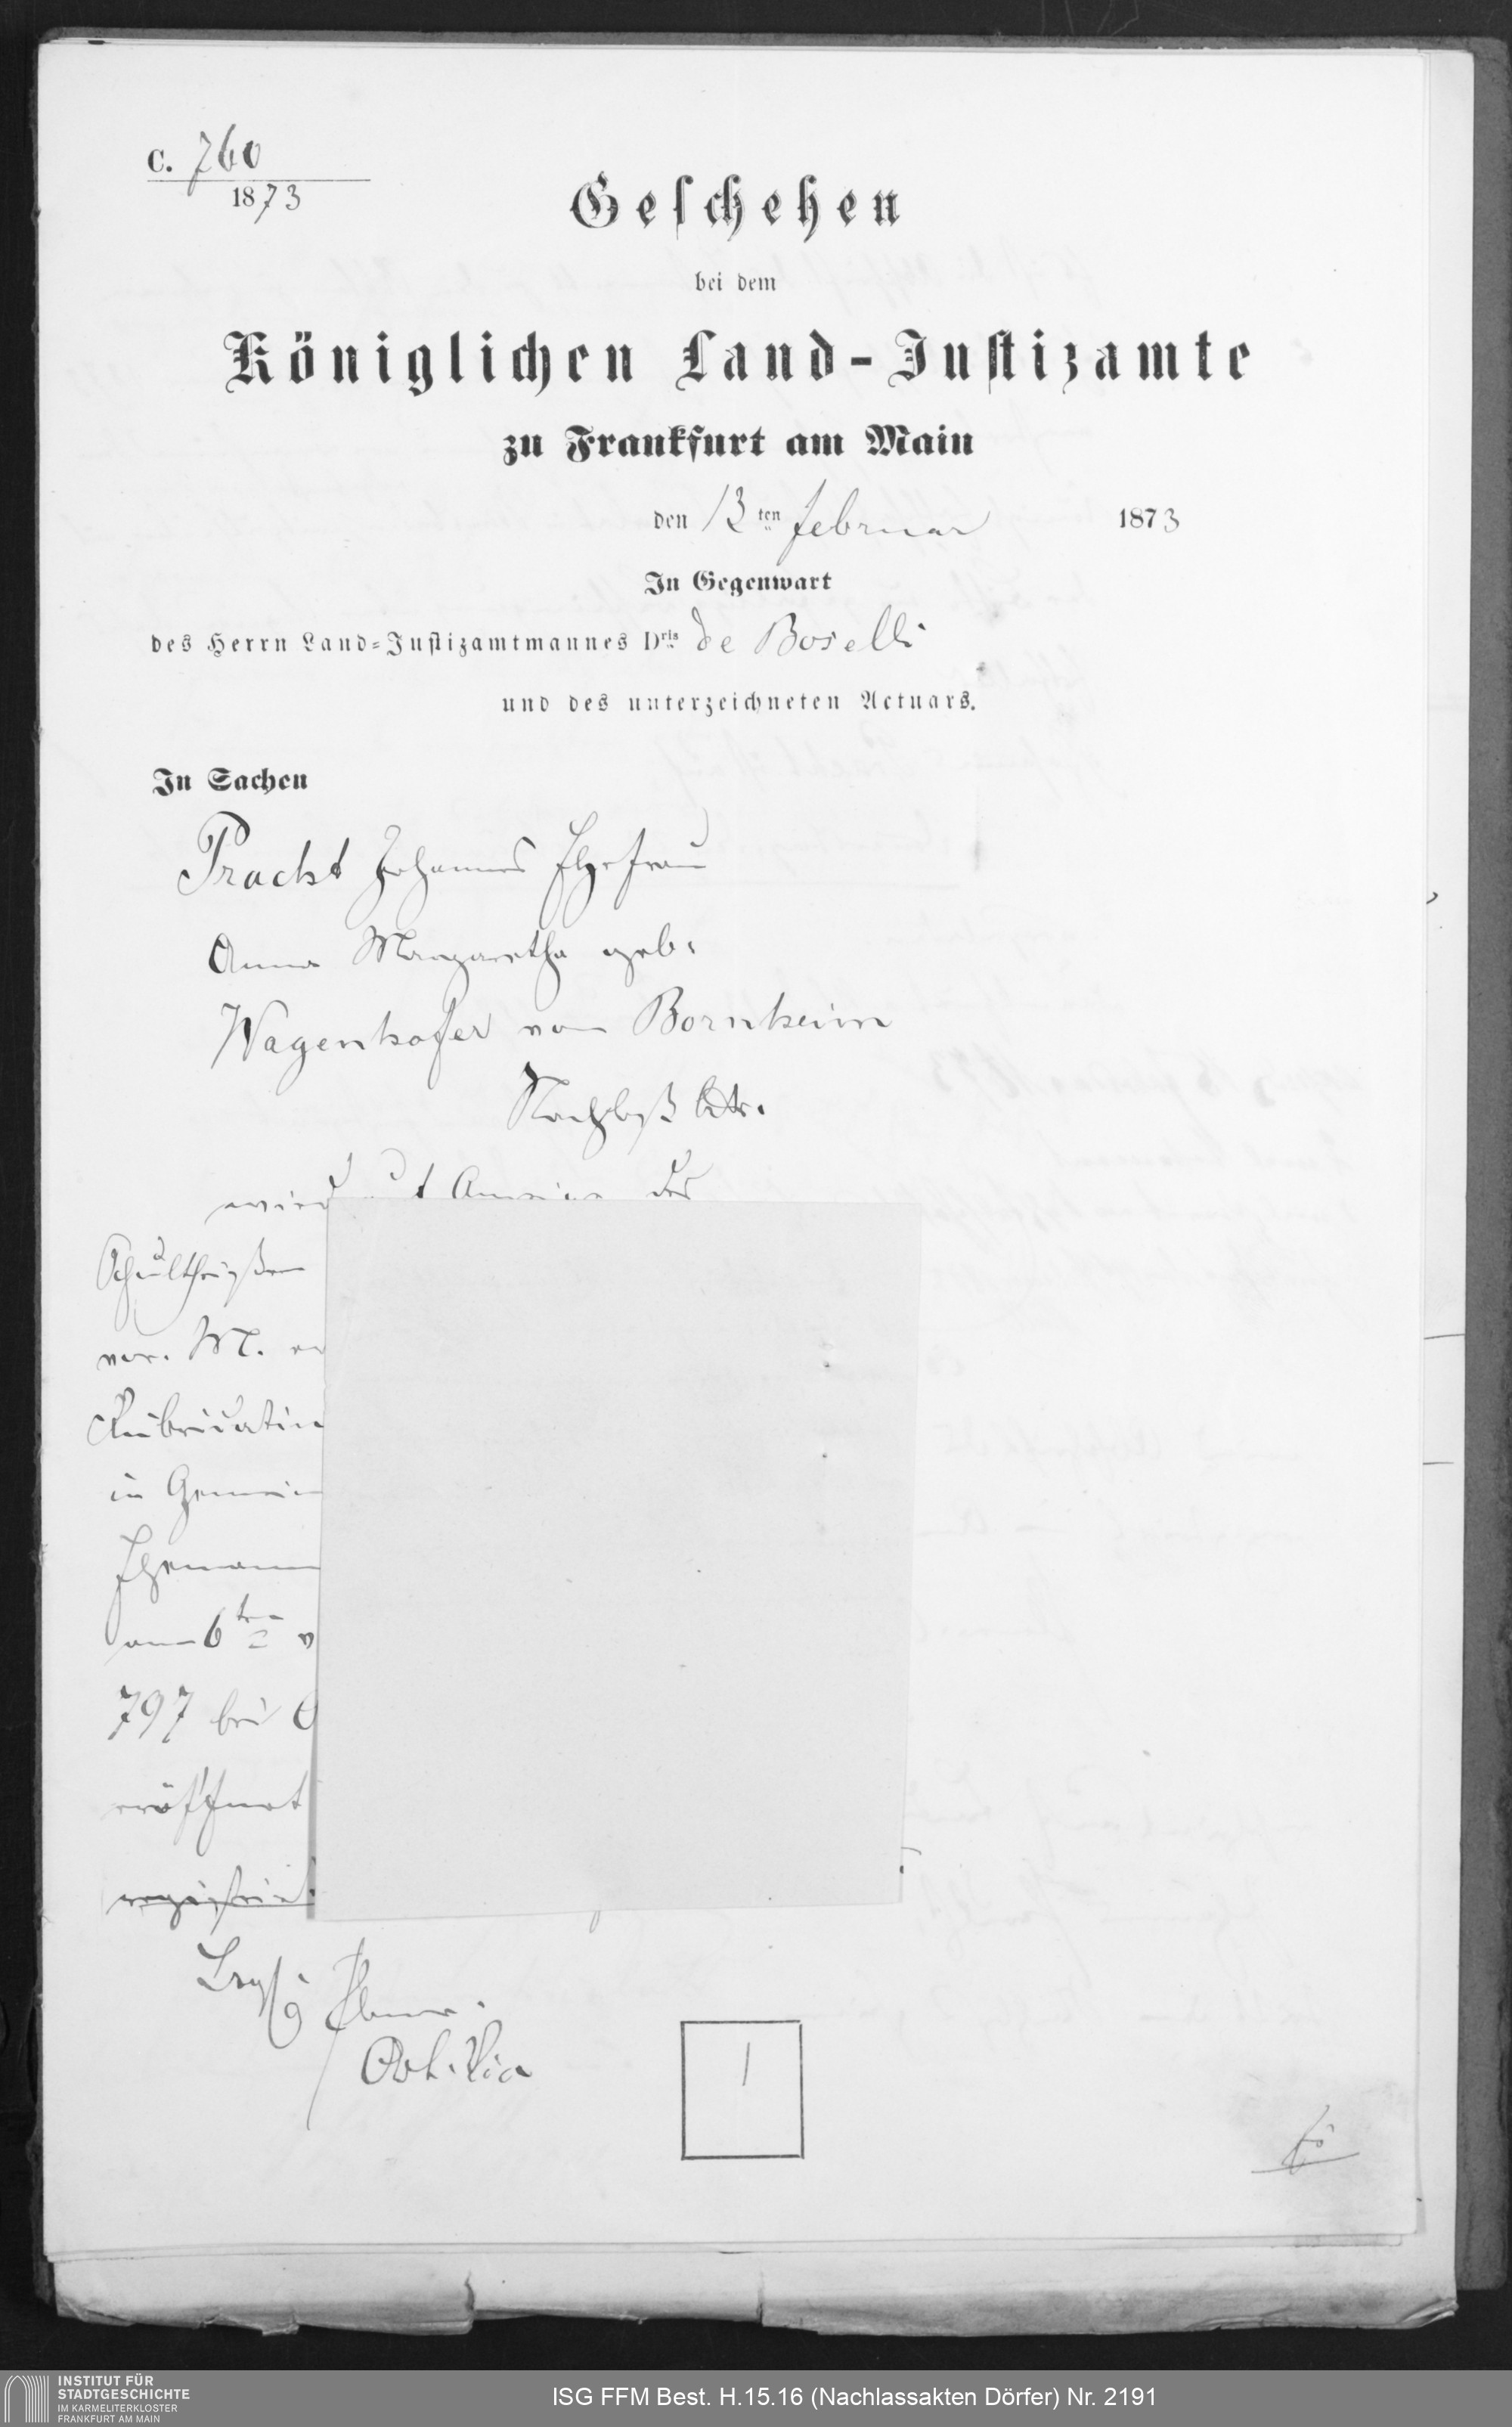 C. 760
1873
Geschehen
bei dem
Königlichen Land-Justizamte
zu Frankfurt am Main
den 13ten Februar 1873
In Gegenwart
des Herrn Land-Justizamtmannes Dris de Boselli
und des unterzeichneten Actuars.
In Sachen
Pracht Johannes Ehefrau
Anna Margaretha geb.
Wagenhofer von Bornheim
Nachlaß btr.
wird der
Schultheißen
M.
in
Ehemann
am 6ten
797 bei
eröffnet
registrirt
1
INSTITUT FÜR
STADTGESCHICHTE
IM KARMELITERKLOSTER
FRANKFURT AM MAIN
ISG FFM Best. H.15.16 (Nachlassakten Dörfer) Nr. 2191